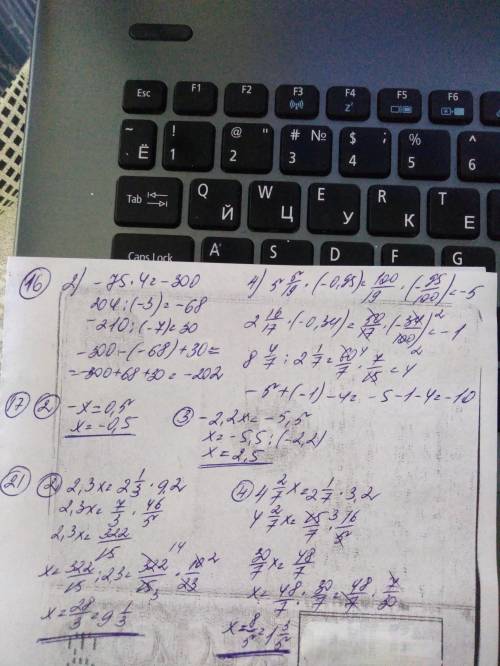 Esc F1 F2 F3 F4 F5 F6
~ Ё ! 1 @ " 2 # № 3 $ ; 4 % 5 ^ 6
Tab Q Й W Ц E У R К T Е
Caps Lock A S D F G
16 2) -75·4=-300
204:(-3)=-68
-210:(-7)=30
-300-(-68)+30=
=-300+68+30=-202
4) 5 5/19·(-0,95)=100/19·(-95/100)=-5
2 16/17·(-0,34)=50/17·(-34/100)=-1
8 4/7:2 1/7=60/7·7/15=4
-5+(-1)-4=-5-1-4=-10
17 2 -x=0,5
x=-0,5
3 -2,2x=-5,5
x=-5,5:(-2,2)
x=2,5
21 2 2,3x=2 1/3·9,2
2,3x=7/3·46/5
2,3x=322/15
x=322/15:2,3=322/15·10/23
x=28/3=9 1/3
4 4 2/7x=2 1/7·3,2
4 2/7x=15/7·16/5
30/7x=48/7
x=48/7:30/7=48/7·7/30
x=8/5=1 3/5